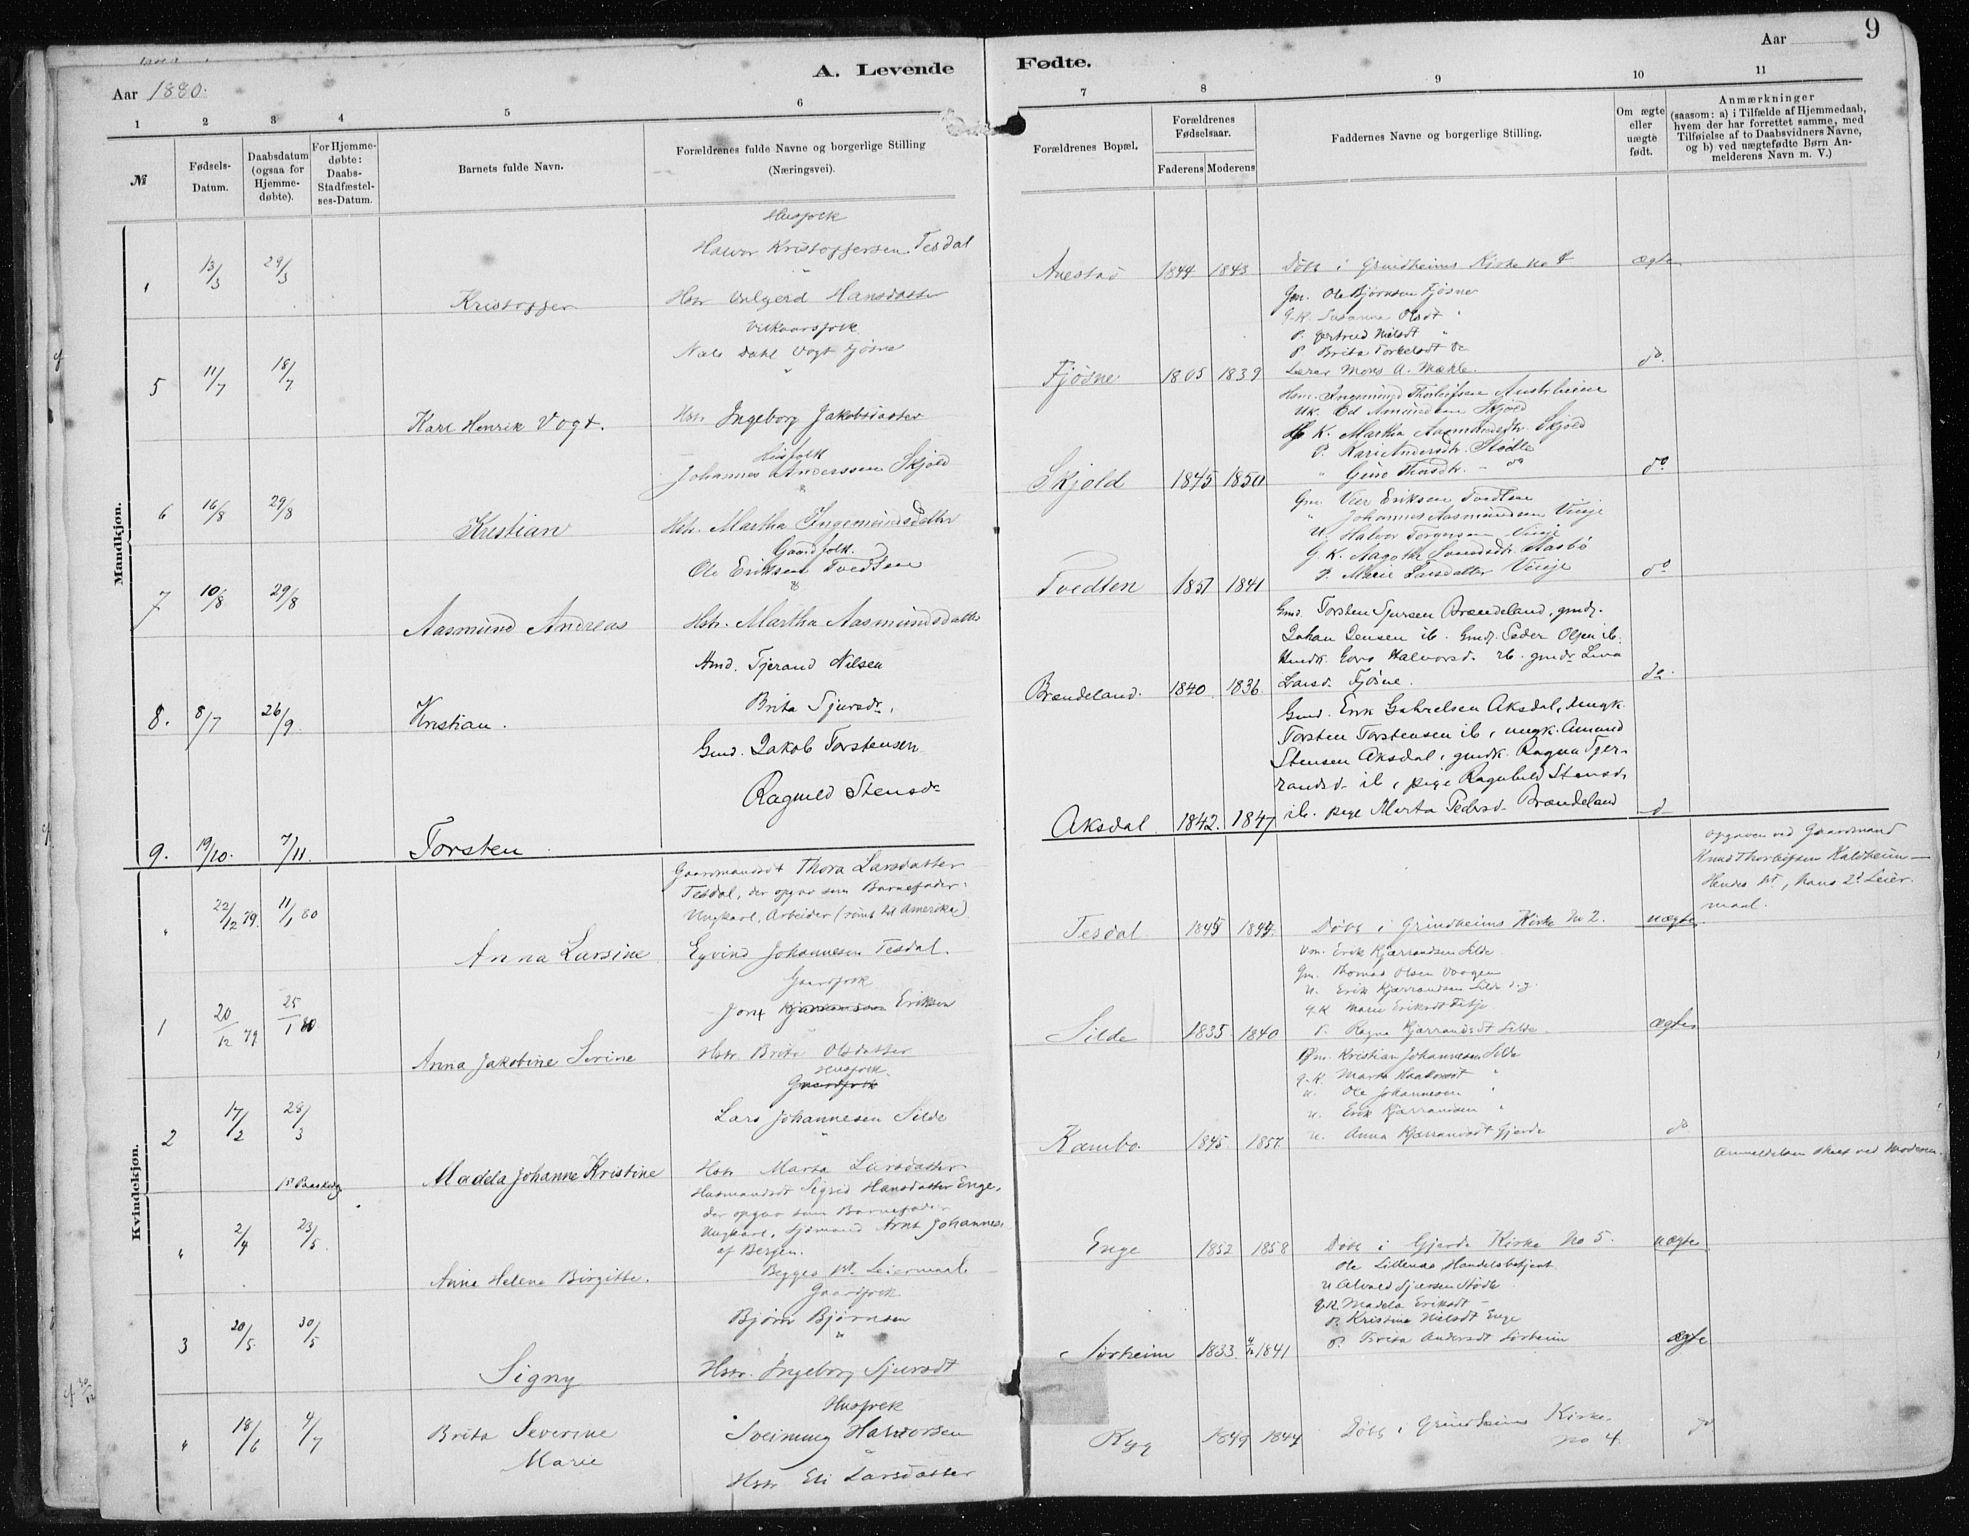 9
A. Levende Fødte.
Aar 1880.
Aar
1 2 3 4 5 6 7 8 9 10 11
№
Fødsels-Datum.
Daabsdatum (ogsaa for Hjemme-døbte).
For Hjemme-døbte: Daabs-Stadfæstel-ses-Datum.
Barnets fulde Navn.
Forældrenes fulde Navne og borgerlige Stilling (Næringsvei).
Forældrenes Bopæl.
Forældrenes Fødselsaar.
Faderens Moderens
Faddernes Navne og borgerlige Stilling.
Om ægte eller uægte født.
Anmærkninger
(saasom: a) i Tilfælde af Hjemmedaab, hvem der har forrettet samme, med Tilføielse af to Daabsvidners Navne, og b) ved uægtefødte Børn Anmelderens Navn m. V.)
Mandkjøn.
Husfolk
Halvor Kristoffersen Tesdal
13/3 29/3
Kristoffer
Hstr Valgerd Hansdatter
1844 1843 Døbt i Grindheims Kirke no 4 ægte
Vilkaarsfolk
Nils Dahl Vogt Fjøsne
5 11/7 18/7
Karl Henrik Vogt.
Hstr Ingeborg Jakobsdatter
Fjøsne 1805 1839
Gm. Ole Bjørnsen Fjøsne
G.K. Susanna Olsdt "
P. Gertrud Nielsdt "
P Brita Torkelsdt do
Lærer Mons A. Mæhle.
do
Husfolk
Johannes Anderssen Skjold
6 16/8 29/8
Kristian
Hstr. Martha Ingemundsdatter
Skjold 1845 1850
Hsm. Ingemund Thorleifsen Austrheim
Uk. Ed Amundsen Skjold
K. Martha Aasmundsdtr. Skjold
P. Kari Andersdtr. Stødle
do
Gaardfolk.
Ole Eriksen Tvedten
7 10/8 29/8
Aasmund Andreas
Hstr. Martha Aasmundsdatter
Tvedten 1851 1841
Gm. Eriksen Tvedten
" Johannes Aasmundsen Vinje
U. Halvor Torgersen Vinje
P. Marie Larsdatter Vinje
do
Tjerand Nilsen
8. 8/7 26/9
Kristian.
Brita Sjursdr.
Brændeland. 1840 1836
Gmd Torsten Sjursen Brændeland, gmdj.
Johan Jensen ib. Gmdj. Peder Olsen ib.
Halvorsd. ib. gmdr Lina
Larsd. Fjøsne.
do
Gmd. Jakob Torstensen
Ragnild Stensdr
9. 19/10. 7/11.
Torsten.
Aksdal 1842. 1847
Gmd. Erik Gabrielsen Aksdal, ungk.
Torsten Torstensen ib, ungk. Amund
Stensen Aksdal, gmdk. Ragna Tjer-
randsd. ib, pige Ragnhild Stensd.
ib. pige Marta Pedersd. Brændeland
d
Kvindekjøn.
Gaardmandsdt Thora Larsdatter
Tesdal, der opgav som Barnefader:
Ungkarl, Arbeider (reist til Amerika)
Eyvind Johannesen Tesdal.
" 22/12 79. 11/1 80
Anna Larsine
Tesdal 1845 Døbt i Grindheims Kirke No 2. uægte
opgaven ved Gaardmand
Knud Thorleifsen Kaldheim —
Hendes 1st, hans 2d Leier-
maal.
Gaardfolk
Eriksen
1 20/12 79 25/1 80
Anna Jakobine Serine
Hstr Brita Olsdatter
Silde 1835 1840
Gm. Erik Kjærrandsen Silde
Gm. Thomas Olsen Vaagen
U. Erik Kjærrandsen Silde
G.K Marie Eriksdt
P. Ragna Kjærrandsdt Silde
ægte
Husfolk
Gaardfolk
Lars Johannesen Silde
2 17/2 28/3
1st Paaskedg
Madela Johanne Kristine
Hstr Marta Larsdatter
Kambo 1845. 1857
Gm. Kristian Johannesen Silde
G.K. Marta Haakonsdt "
U. Ole Johannesen "
U. Erik Kjærrandsen "
U. Anna Kjærrandsdt Gjerde
do
Husmandsdt Sigrid Hansdatter Enge,
der opgav som Barnefader
Ungkarl, Sjømand Arnt Johannes
af Bergen.
Begges 1st. Leiermaal
" 2/4 23/5.
Anna Helene Birgitte.
Enge 1852 1858 Døbt i Gjerde Kirke No 5. uægte
Anmeldelsen skeet ved Moderen.
Gaardfolk
Bjørn Bjørnsen
3 20/5. 30/5
Signy
Hstr. Ingeborg Sjursdt
Sørheim 1833. 1841
Ole Lillenes Handelsbetjent
U Sjursen Stødle
G.K. Madela Eriksdt
P. Kristina Nielsdt Enge
P. Brita Andersdt Sørheim
ægte
Husfolk
Sveinung Halvorsen
" 18/6 4/7
Brita Severine
Marie
Hstr Eli Larsdatter
Ryg 1849 1844 Døbt i Grindheims Kirke.
no 4.
do